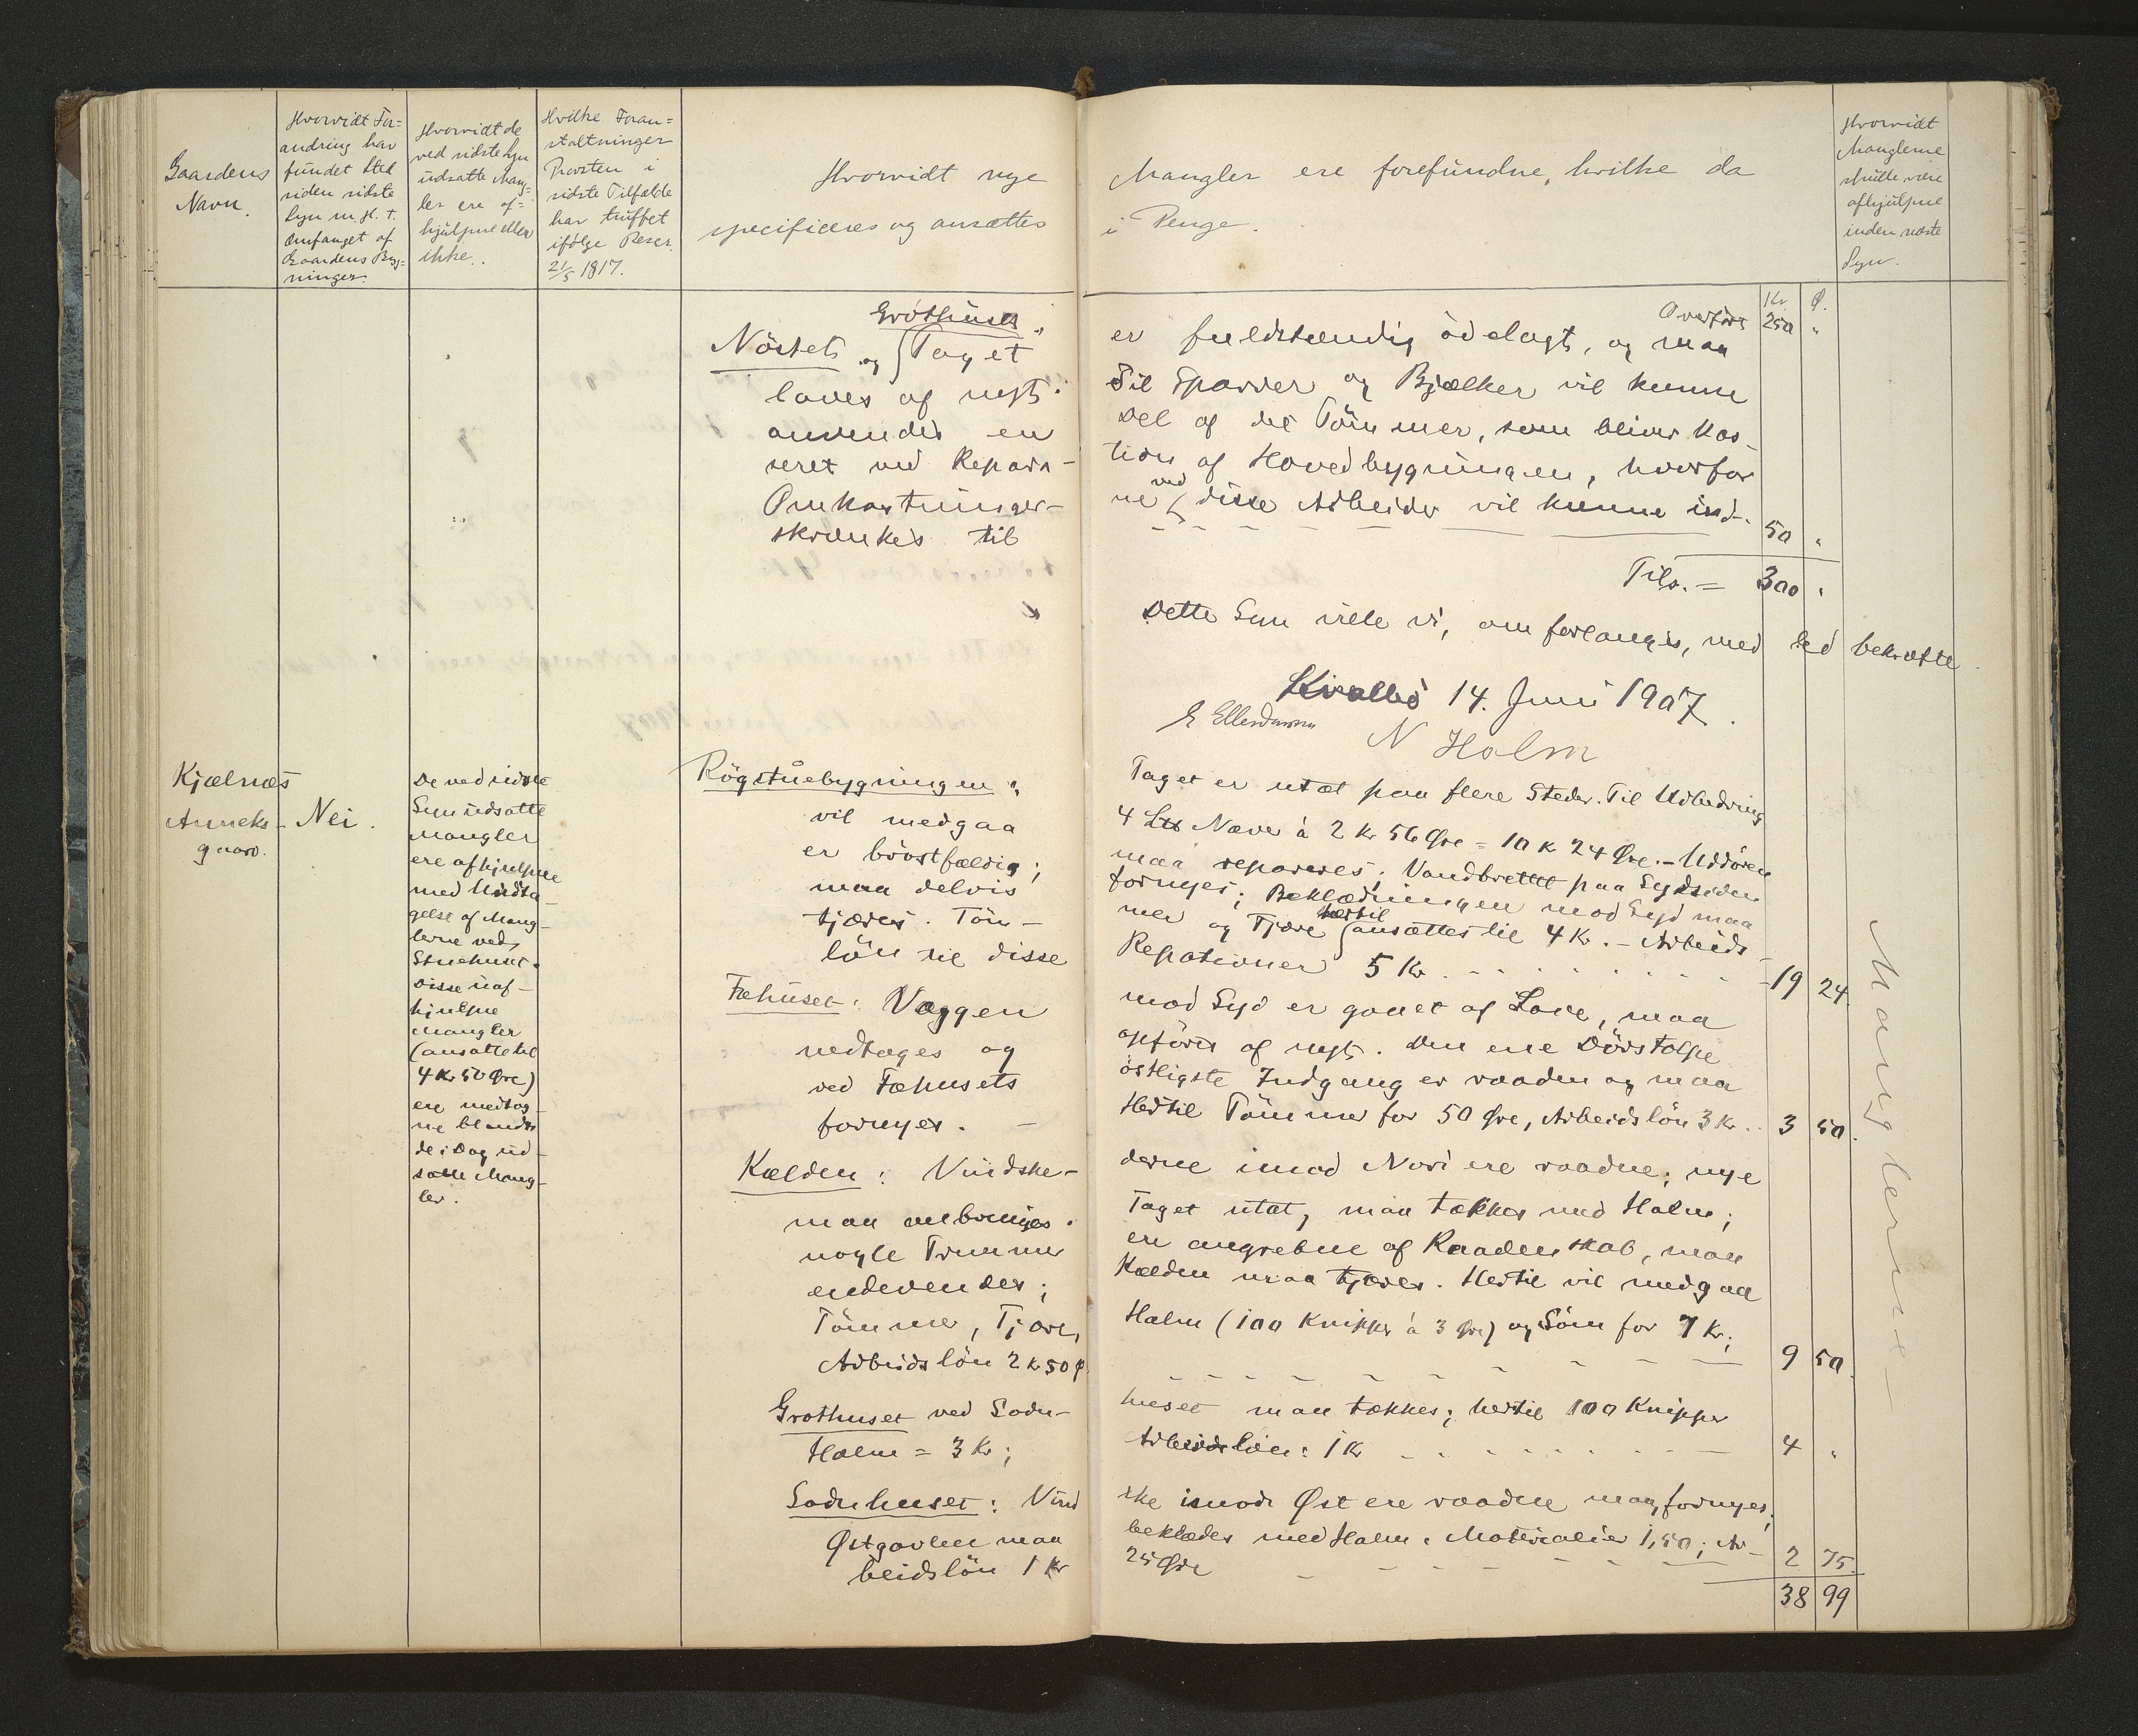 Gaardens
Navn.
Hvorvidt For-
andring har
fundet Sted
siden sidste
Syn m. H. t.
Omfanget af
Gaardens Byg-
ninger.
Hvorvidt de
ved sidste Syn
udsatte Mang-
ler ere af-
hjulpne eller
ikke.
Hvilke Foran-
staltninger
Provsten i
sidste Tilfælde
har truffet
ifølge Rescr.
21/5 1817.
Hvorvidt nye Mangler ere forefundne, hvilke da
specificeres og ansættes i Penge.
Hvorvidt
Manglerne
skulle være
afhjulpne
inden næste
Syn.
Kr. Ø.
Overført 250 "
Gróthusets
Nöstets og Taget er fuldstændig ödelagt, og maa
laves af nyt. Til Sparrer og Bjælker vil kunne
anvendes en Del af det Tömmer, som bliver kas-
seret ved Repara- tion af Hovedbygningen, hvorfor
Omkostninger- ne ved disse Arbeider vil kunne ind-
skrænkes til 50 "
Tils. = 300 "
Dette Syn ville vi, om forlanges, med Ed bekræfte.
Kvalbö 14. Juni 1907.
N Holm
Kjælnæs
Anneks-
gaard.
Nei.
De ved sidste
Syn udsatte
Mangler
ere afhjulpne
med Undta-
gelse af Mang-
lerne ved
Stuehuset.
Disse uaf-
hjulpne
Mangler
(ansatte til
4 Kr 50 Øre)
ere medtag-
ne blandt
de i Dag ud-
satte Mang-
ler.
Rögstuebygningen: Taget er utæt paa flere Steder. Til Udbedring
vil medgaa 4 Næver à 2 Kr 56 Øre = 10 K 24 Øre. - Uddören
er bröstfældig; maa repareres; Vandbrettet paa Sydsiden
maa delvis fornyes; Beklædningen mod Syd maa
tjæres. Töm- mer og Tjære hertil ansættes til 4 Kr. - Arbeids-
lön til disse Repationer 5 Kr. 19 24
Fæhuset: Væggen mod Syd er gaaet af Lave, maa
nedtages og opföres af nyt. Den ene Dörstolpe
ved Fæhusets östligste Indgang er raaden og maa
fornyes. - Hertil Tömmer for 50 Øre, Arbeidslön 3 Kr. 3 50
Kælden: Vindske- derne imod Nord ere raadne; nye
maa anbringes. Taget utæt, maa tækkes med Halm;
nogle Trummer ere angrebne af Raaddenskab, maa
endevendes; Kælden maa tjæres. Hertil vil medgaa
Tömmer, Tjære, Halm (100 Knipper à 3 Øre) og Söm for 7 Kr;
Arbeidslön 2 K 50 Ø. 9 50
Grothuset ved Sodn- huset maa tækkes; hertil 100 Knipper
Halm = 3 Kr; Arbeidslön: 1 K 4 "
Sodnhuset: Vind ske imod Øst ere raadne maa fornyes;
Østgavlen maa beklædes med Halm. Materialier 1,50; Ar-
beidslön 1 Kr 25 Øre 2 75
38 99
Manglerne